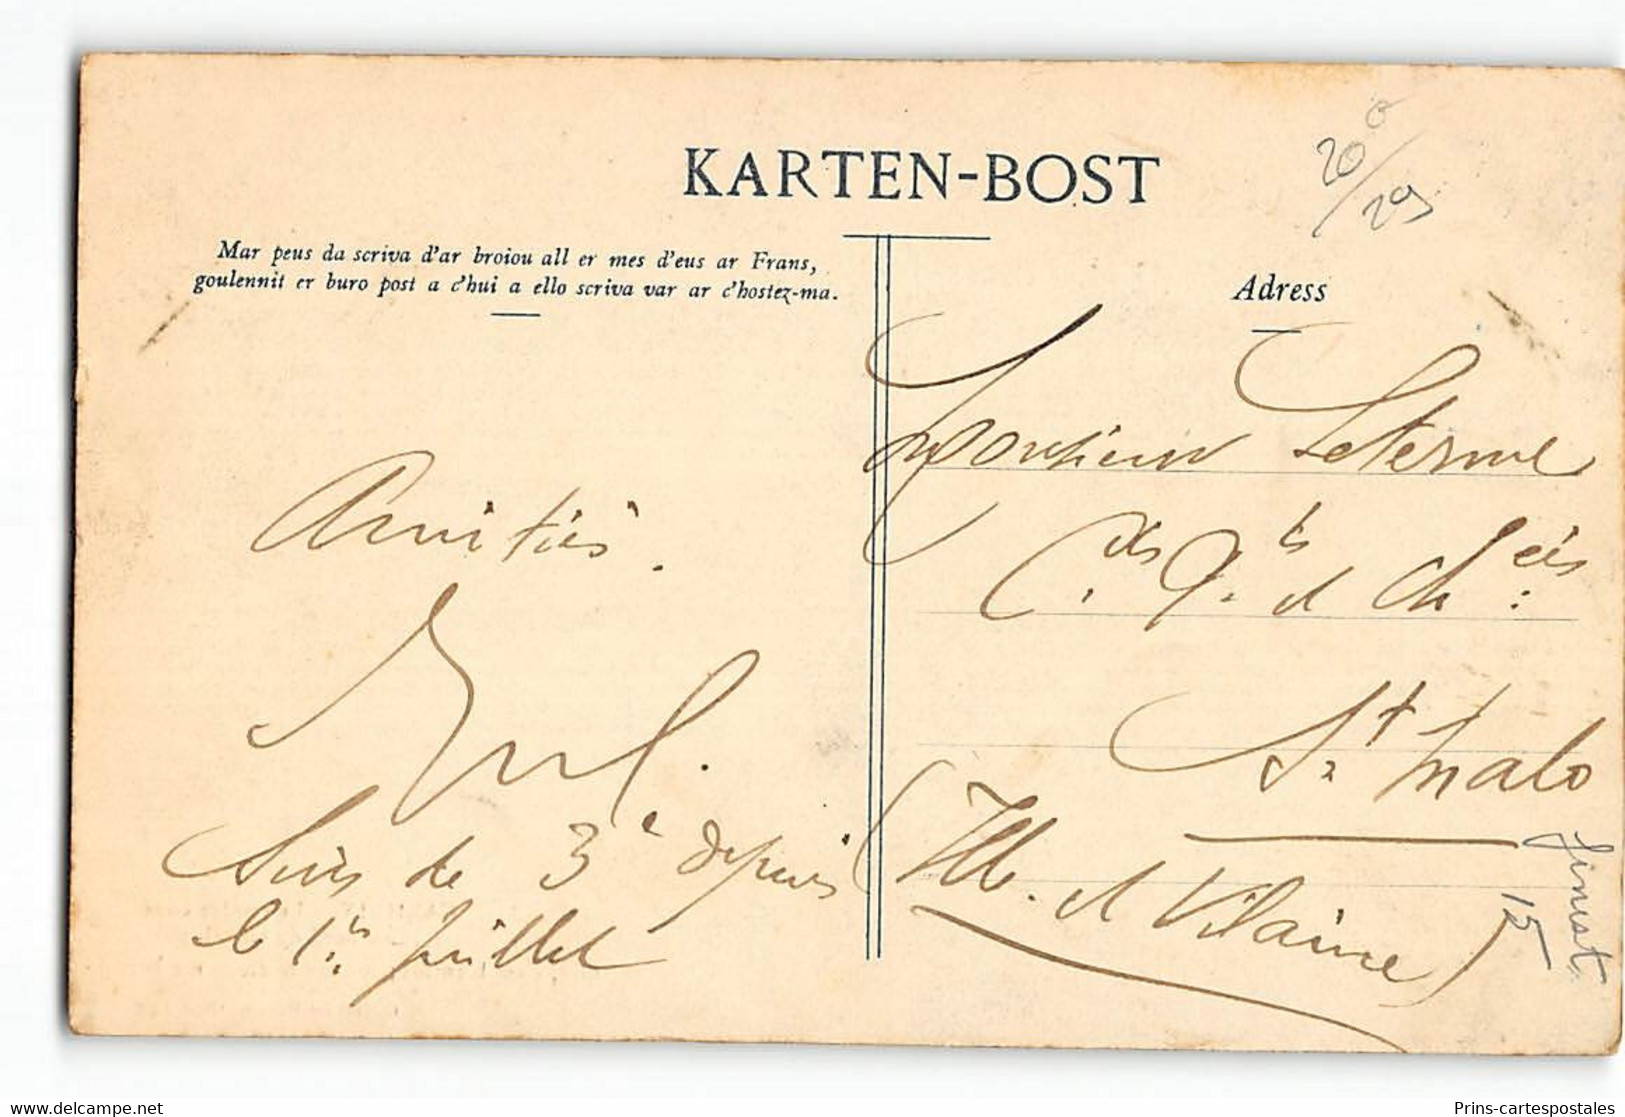 KARTEN-BOST
20
29
Mar peus da scriva d'ar broiou all er mes d'eus ar Frans,
goulennit er buro post a c'hui a ello scriva var ar c'hostez-ma.
Adress
Monsieur Leterme
Cr des Pts et Chées
St Malo
(Ille et Vilaine)
Amitiés.
Suis de 3e depuis
le 1er Juillet
finist
15
delcampe.net
Prins-cartespostales